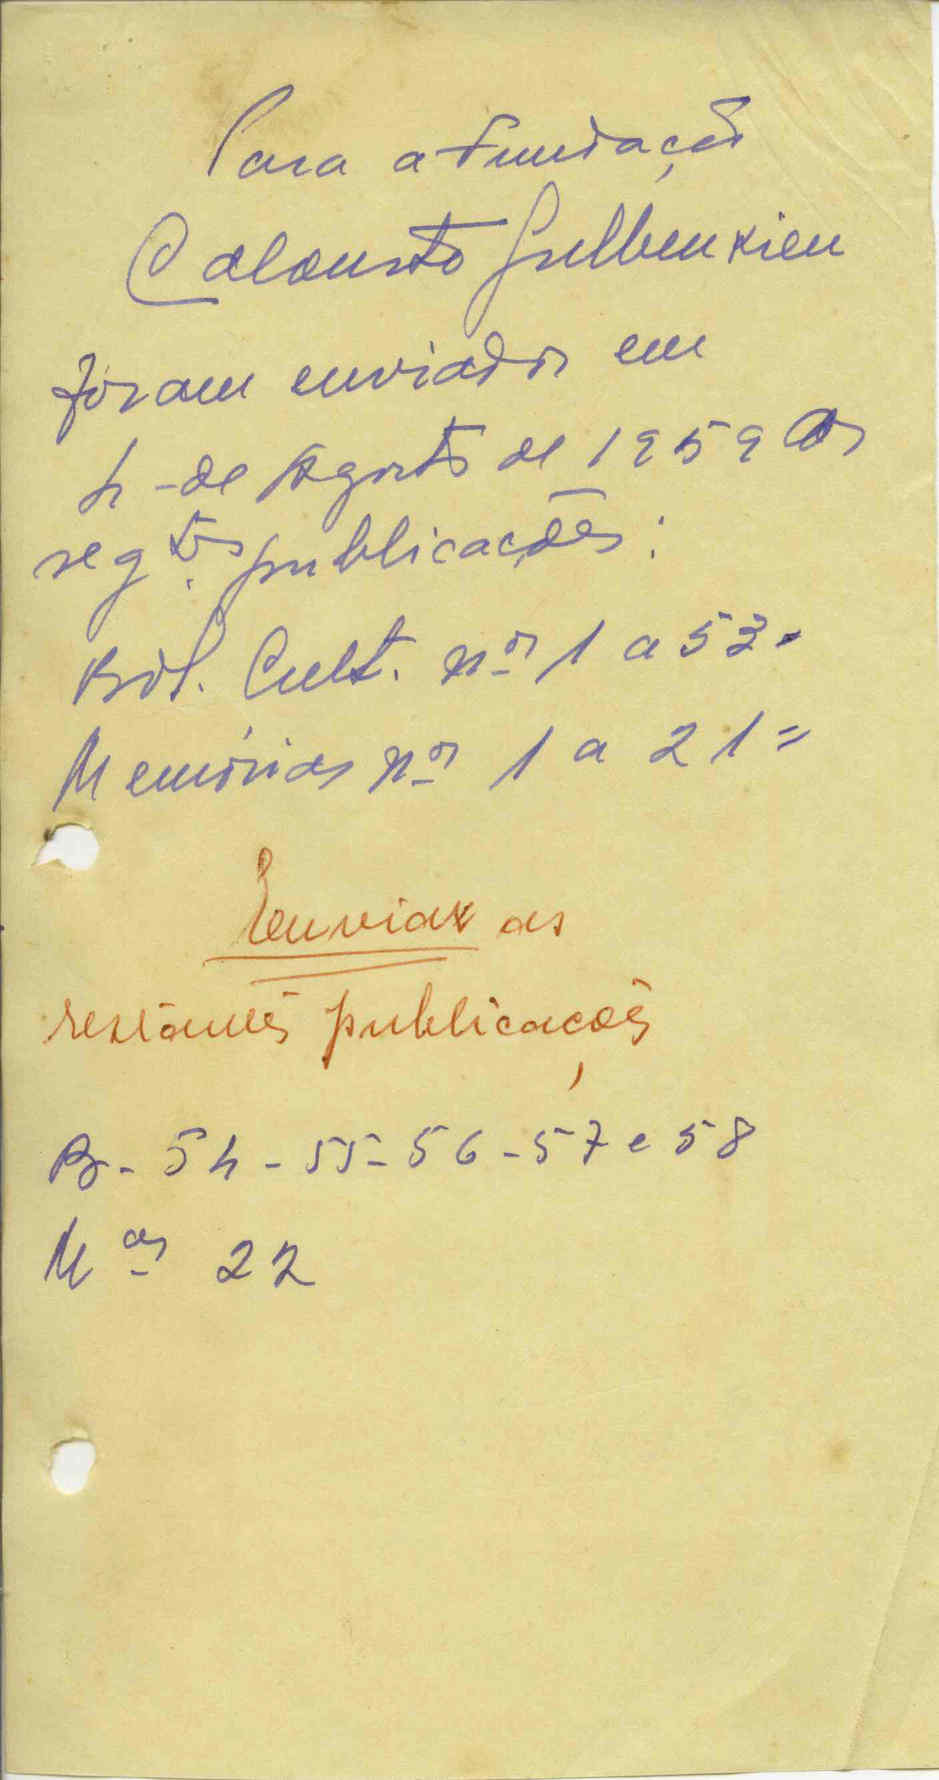 Para a Fundação
Calouste Gulbenkien
foram enviados em
4 - de Agosto de 1959 as
segtes publicações:
Bol. Cult. nos 1 a 53.
Memórias nos 1 a 21 =
Enviar as
restantes publicações
B - 54 - 55 - 56 - 57 e 58
Mas 22